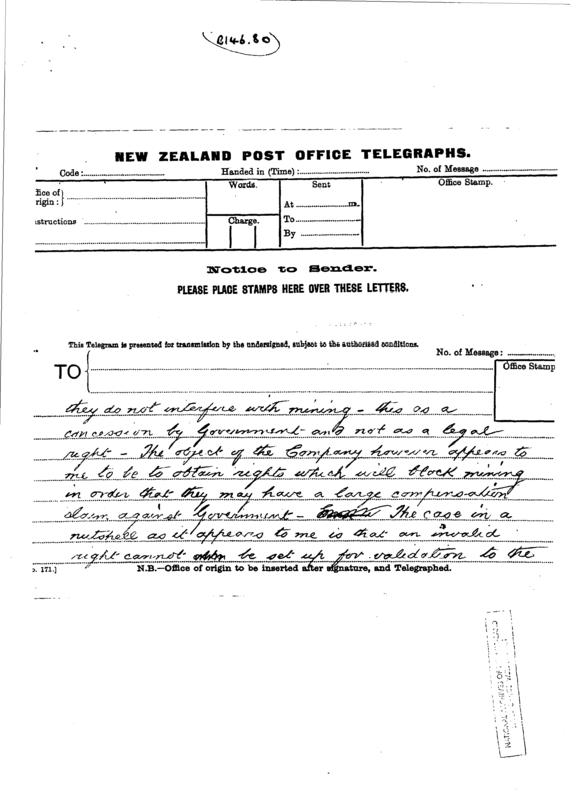 B146.80
NEW ZEALAND POST OFFICE TELEGRAPHS.
Code: Handed in (Time): No. of Message
fice of
rigin: Words. Sent Office Stamp.
At m.
structions Charge. To
By
Notice to Sender.
PLEASE PLACE STAMPS HERE OVER THESE LETTERS.
This Telegram is presented for transmission by the undersigned, subject to the authorised conditions.
No. of Message:
TO Office Stamp
they do not interfere with mining - this as a
concession by Government and not as a legal
right - The object of the Company however appears to
me to be to obtain rights which will block mining
in order that they may have a large compensation
claim against Government - The case in a
nutshell as it appears to me is that an invalid
right cannot be set up for validation to the
171.] N.B.—Office of origin to be inserted after signature, and Telegraphed.